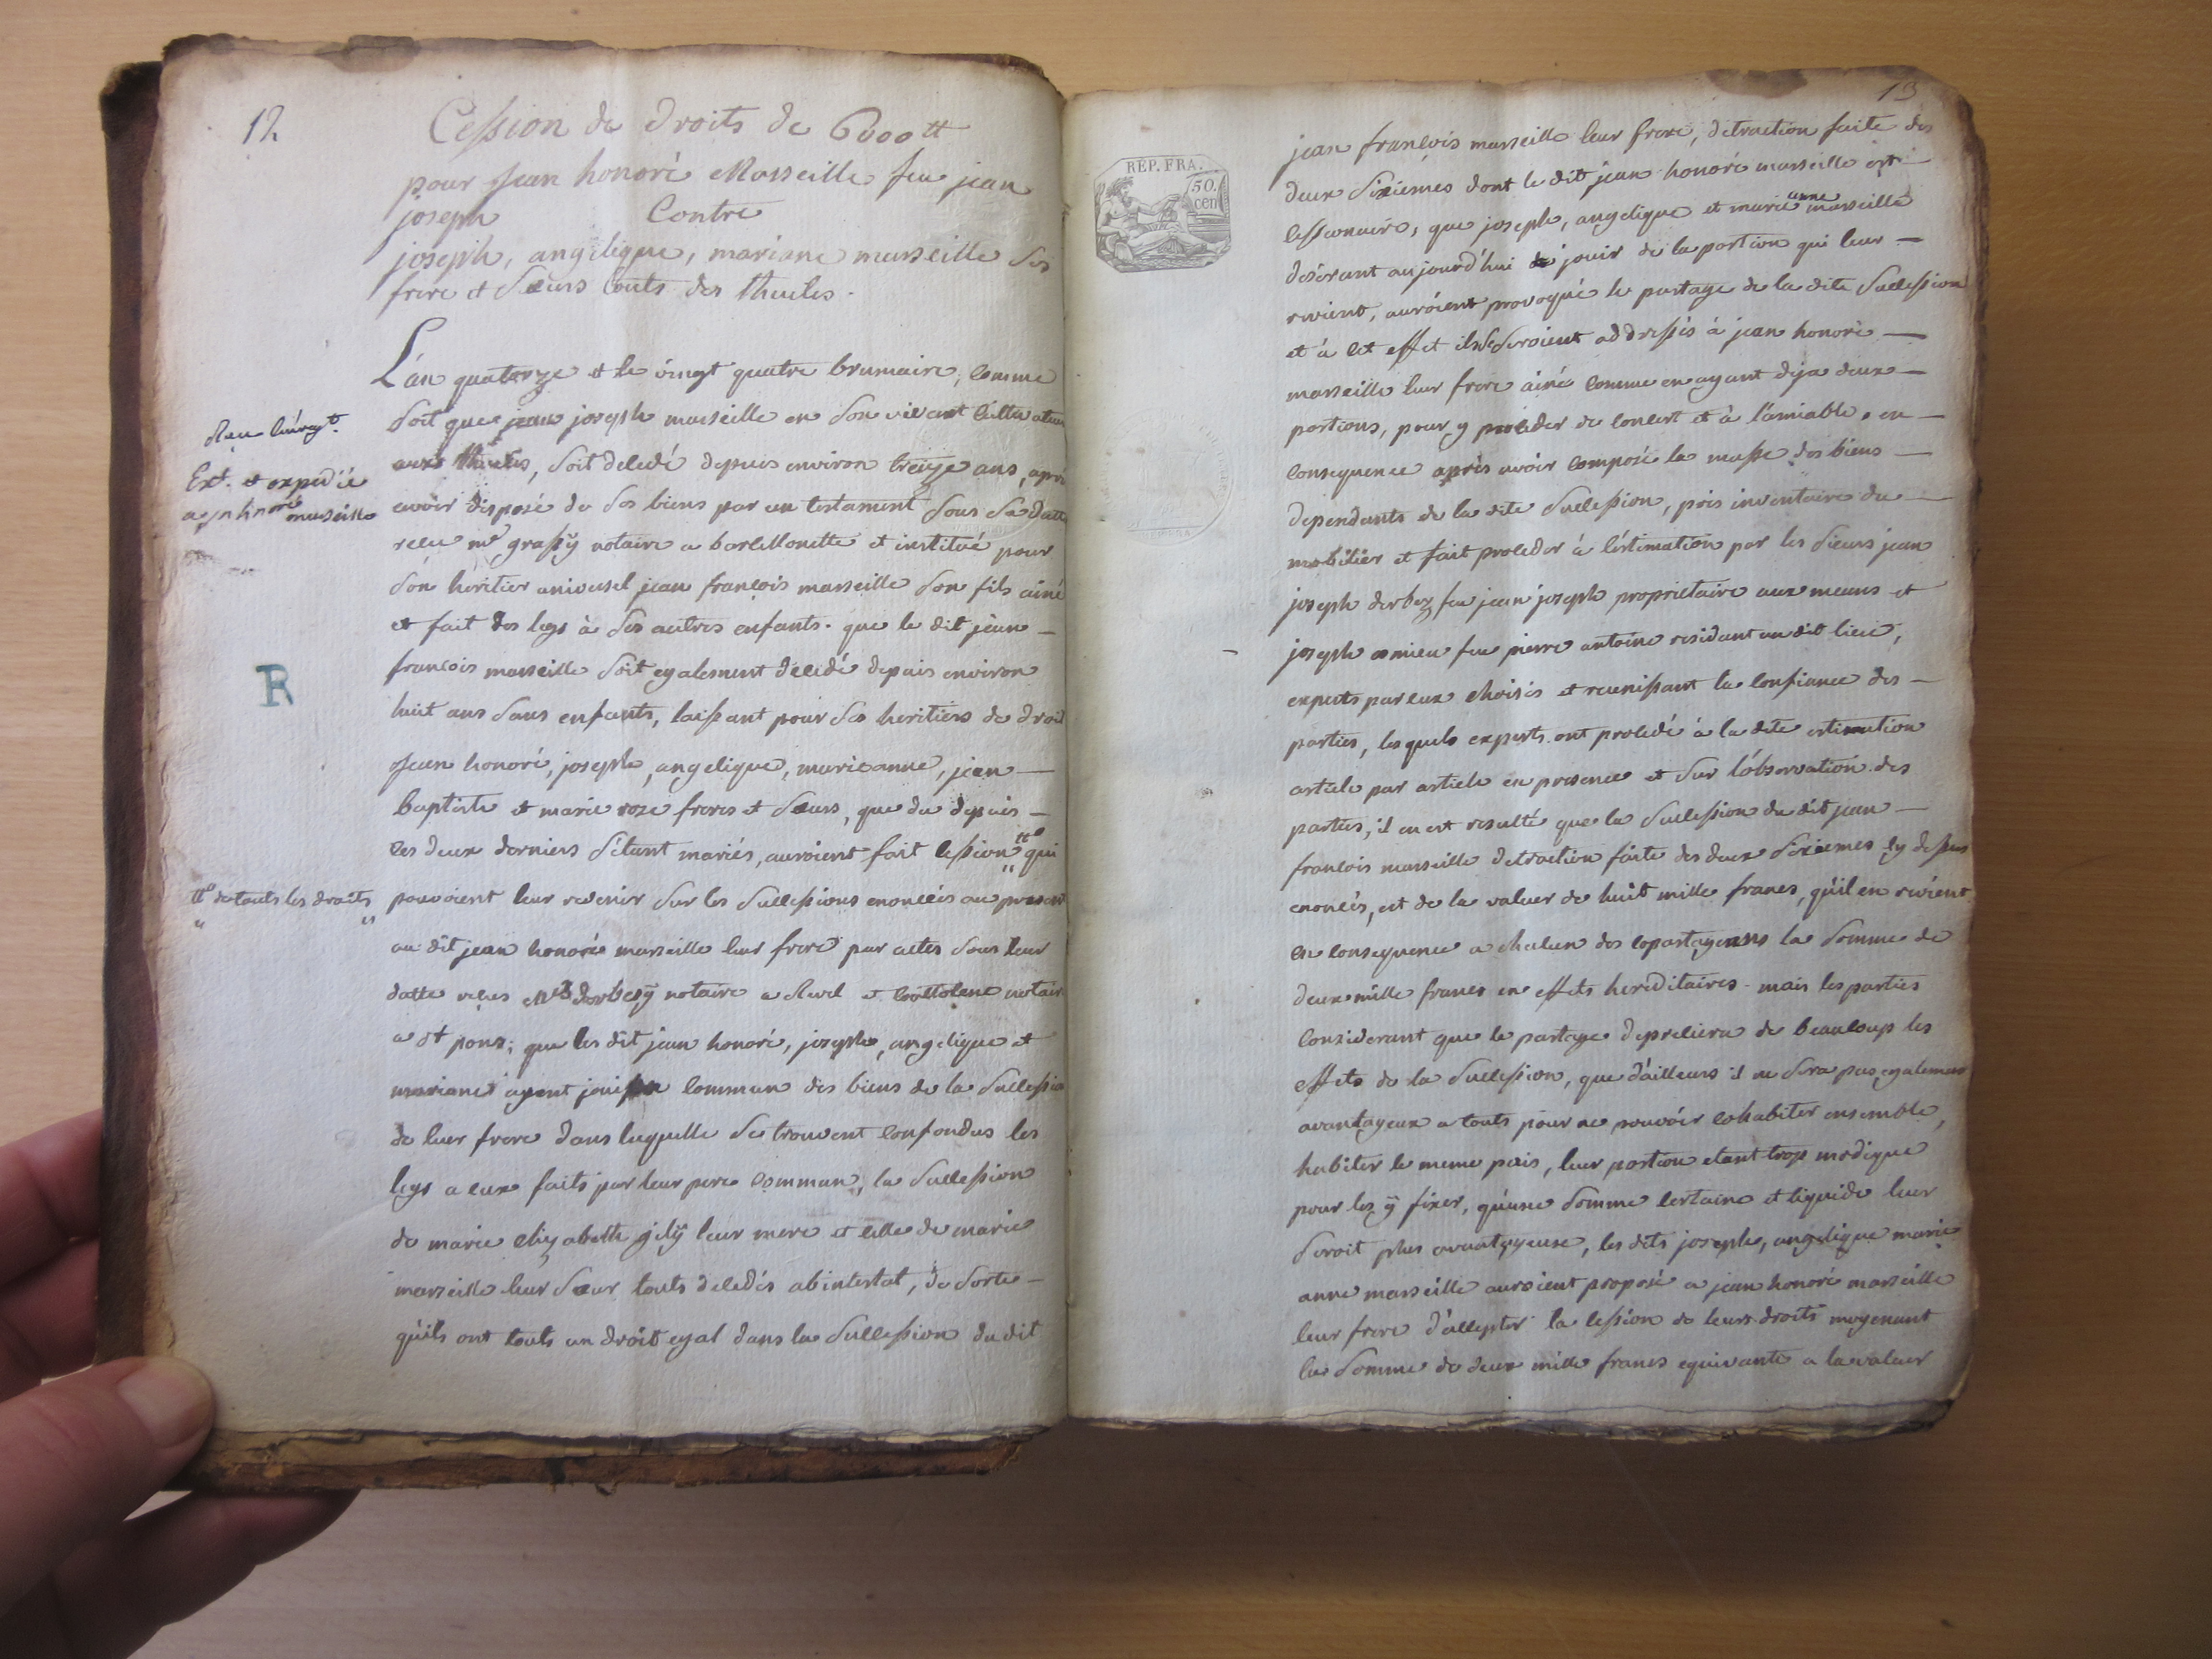 12
Cession de droits de 6000 ₶
pour Jean honoré Marseille feu jean
joseph Contre
joseph, angelique, mariane marseille ses
frere et sœurs touts des thuiles.
L'an quatorze et le vingt quatre brumaire, comme
soit que jean joseph marseille en son vivant cultivateur
aux thuiles, soit decedé depuis environ treize ans, aprés
avoir disposé de ses biens par un testament sous sa datte
reçu me grassÿ notaire a barcellonette et institué pour
son héritier universel jean françois marseille son fils ainé
et fait des legs à ses autres enfants. que le dit jean
françois marseille soit egalement décedé depuis environ
huit ans sans enfants, laissant pour ses heritiers de droit
Jean honoré, joseph, angelique, marieanne, jean
baptiste et marie roze freres et sœurs, que du depuis
les deux derniers s'étant mariés, auroient fait cession qui
pouvoient leur revenir sur les successions enoncées au present
au dit jean honoré marseille leur frere par actes sous leur
datte reçus Mes derbezÿ notaire a Revel et notaire
a st pons; que les dit jean honoré, joseph, angelique et
mariane ayent joui en commun des biens de la succession
de luer frere dans laquelle se trouvent confondus les
legs a eux faits par leur pere commun, la succession
de marie elizabeth gilÿ leur mere et celle de marie
marseille leur sœur touts decedés abintestat, de sorte
qu'ils ont touts un droit egal dans la succession du dit
Ext. et expedié
a jn hnoré marseille
R
de touts les droits
13
REP. FRA.
50.
cen
jean françois marseille leur frere, detraction faite des
deux sixiemes dont le dit jean honoré marseille est
cessionaire, que joseph, angelique et marie anne marseille
desirant aujourd'hui de jouir de la portion qui leur
revient, auroient provoqué le partage de la dite succession
et à cet effet ils se seroient addressés à jean honoré
marseille leur frere ainé comme en ayant deja deux
portions, pour y proceder de concert et à l'amiable. en
consequence après avoir composé la masse des biens
dependants de la dite succession, pris inventaire du
mobilier et fait proceder à l'estimation par les sieurs jean
joseph derbez feu jean joseph proprietaire aux means et
joseph esmieu feu pierre antoine residant au dit lieu,
experts par eux choisis et reunissant la confiance des
parties, lesquels experts ont procedé à la dite estimation
article par article en presence et sur l'observation des
parties, il en est resulté que la succession du dit jean
françois marseille detraction faite des deux sixiemes cy dessus
enoncés, est de la valuer de huit mille francs, qu'il en revient
en consequence a chacun des copartageans la somme de
deux mille francs en effets hereditaires. mais les parties
considerant que le partage depreciera de beaucoup les
effets de la succession, que d'ailleurs il ne sera pas egalement
avantageux a touts pour ne pouvoir cohabiter ensemble,
habiter le meme païs, leur portion etant trop modique
pour les ÿ fixer, qu'une somme certaine et liquide leur
seroit plus avantageuse, les dits joseph, angelique marie
anne marseille auroient proposé a jean honoré marseille
leur frere d'accepter la cession de leurs droits moyenant
la somme de deux mille francs equivante a la valuer